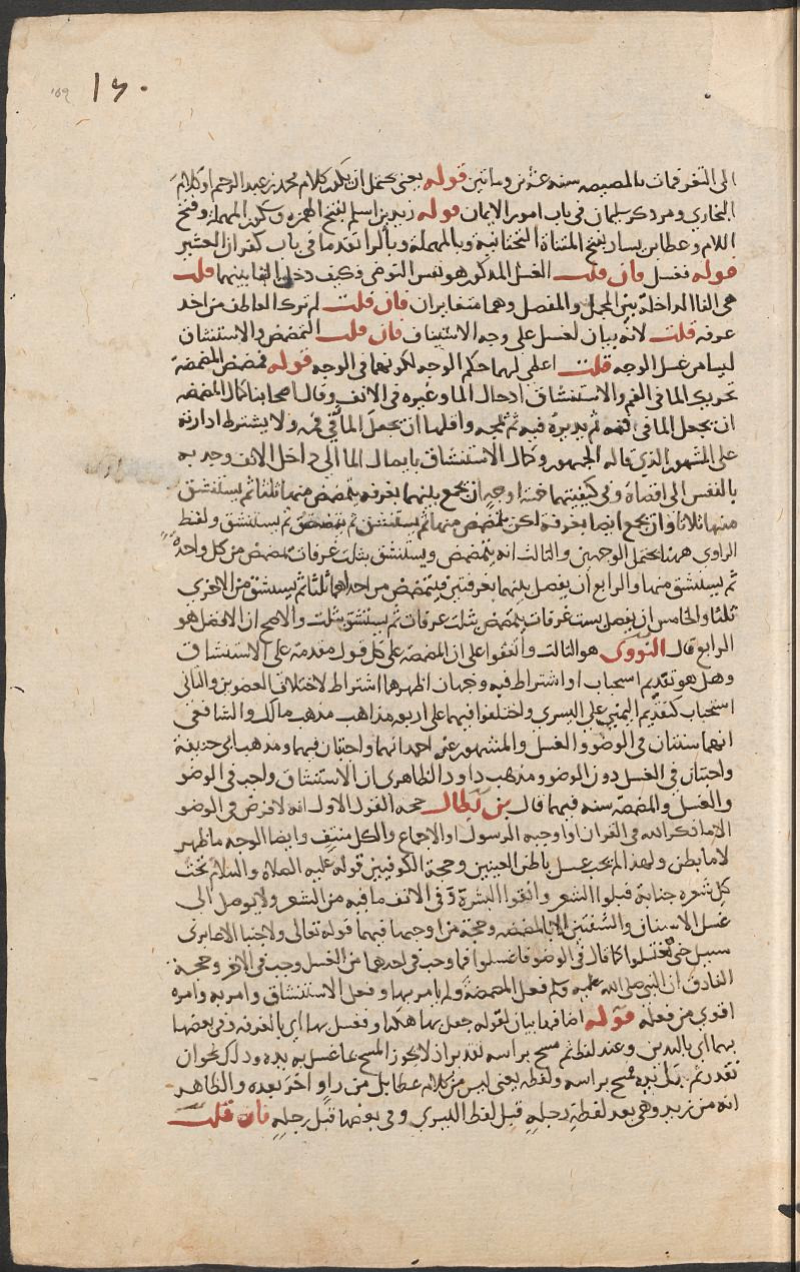 ١٦٠
الى الثغر فمات بالمصيصه سنة عشرين ومائتين قوله يعني يحتمل ان يكون كلام محمد بن عبد الرحيم او كلام
البخاري ومر ذكر سليمان في باب امور الايمان قوله زيد بن اسلم بفتح الهمزه وسكون المهملة وفتح
اللام وعطا بن يسار بفتح المثناة التحتانية وبالمهملة وبالرا تقدما في باب كفران العشير
قوله فغسل فان قلت الغسل المذكور هو نفس التوضي فكيف دخل الفا بينهما قلت
هي الفا الداخلة بين المجمل والمفصل وهما متغايران فان قلت لم ترك العاطف من اخذ
غرفة قلت لانه بيان لغسل على وجه الاستيناف فان قلت التمضمض والاستنشاق
ليسا من غسل الوجه قلت اعطى لهما حكم الوجه لكونهما في الوجه قوله فمضمض المضمضة
تحريك الما في الفم والاستنشاق ادخال الما وغيره في الانف وقال اصحابنا كمال المضمضه
ان يجعل الما في فمه ثم يديره فيه ثم يمجه واقلها ان يجعل الما في فمه ولا يشترط ادارته
على المشهور الذي قاله الجمهور وكمال الاستنشاق بايصال الما الى داخل الانف وجذبه
بالنفس الى اقصاه وفي كيفيتهما خمسة اوجه ان يجمع بينهما بغرفه يتمضمض منها ثلثا ثم يستنشق
منها ثلاثا وان يجمع ايضا بغرفة لكن يتمضمض منها ثم يستنشق ثم يتمضمض ثم يستنشق ولفظ
الراوي ههنا يحتمل الوجهين والثالث انه يتمضمض ويستنشق بثلث غرفات يتمضمض من كل واحدة
ثم يستنشق منها والرابع ان يفصل بينهما بغرفتين فيتمضمض من احداهما ثلثا ثم يستنشق من الاخرى
ثلثا والخامس ان يفصل بست غرفات يتمضمض بثلث غرفات ثم يستنشق بثلث والاصح ان الافضل هو
الرابع قال النووي هو الثالث واتفقوا على ان المضمضة على كل قول مقدمة على الاستنشاق
وهل هو تقديم استحباب او اشتراط فيه وجهان اظهرهما اشتراط لاختلاف العضوين والثاني
استحباب كتقديم اليمنى على اليسرى واختلفوا فيهما على اربعه مذاهب مذهب مالك والشافعي
انهما سنتان في الوضو والغسل والمشهور عن احمد انهما واجبتان فيهما ومذهب ابي حنيفة
واجبتان في الغسل دون الوضو ومذهب داود الظاهري ان الاستنشاق واجب في الوضو
والغسل والمضمضة سنه فيهما قال بن بطال حجه القول الاول انه لا فرض في الوضو
الا ما ذكر الله في القران او اوجبه الرسول او الاجماع والكل منتف وايضا الوجه ما ظهر
لا ما بطن ولهذا لم يجب غسل باطن العينين وحجة الكوفيين قوله عليه الصلاة والسلام تحت
كل شعره جنابة فبلوا الشعر وانقوا البشرة وفي الانف ما فيه من الشعر ولا يوصل الى
غسل الاسنان والشفتين الا بالمضمضه وحجة من اوجبها فيهما قوله تعالى ولا جنبا الا عابري
سبيل حتى تغتسلوا كما قال في الوضو فاغسلوا فما وجب في احدهما من الغسل وجب في الاخر وحجة
الفارق ان النبي صلى الله عليه وسلم فعل المضمضة ولم يامر بها وفعل الاستنشاق وامر به وامره
اقوى من فعله قوله اضافها بيان لقوله جعل بها هكذا وفغسل بها اي بالغرفه وفي بعضها
بهما اي باليدين وعند لفظ ثم مسح براسه لا بد ان لا يجوز المسح بما غسل به يده وذلك نحو ان
تقدر ثم بل يده فمسح براسه ولفظه يعني ليس من كلام عطا بل من راو اخر بعده والظاهر
انه من زيد وهي بعد لفظة رجله قبل لفظ اليسرى وفي بعضها قبل رجله فان قلت